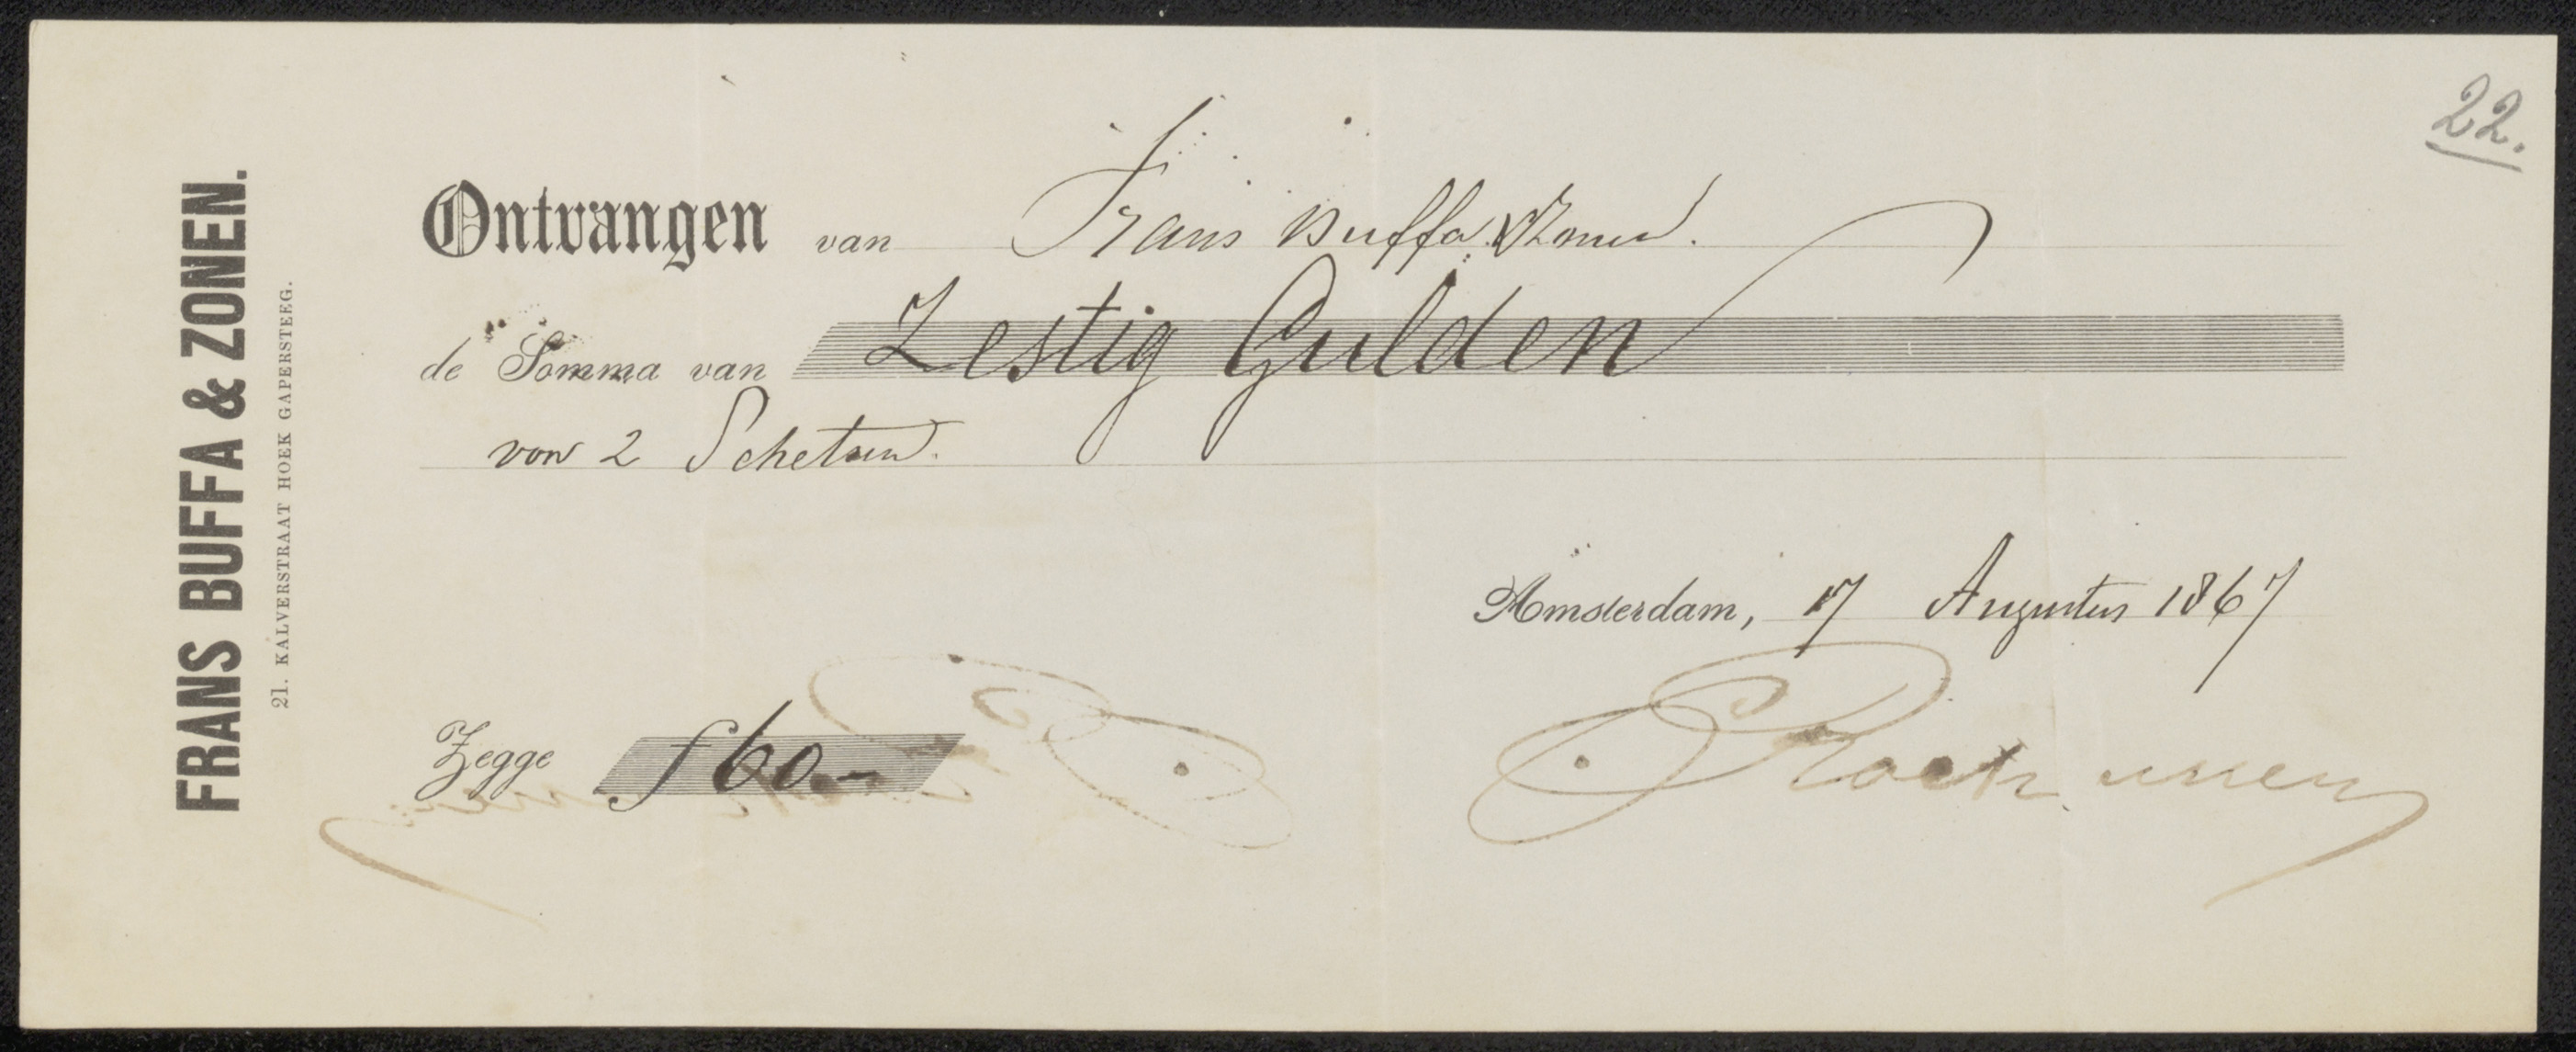 22.
FRANS BUFFA & ZONEN.
21. KALVERSTRAAT HOEK GAPERSTEEG.
Ontvangen van Frans Buffa & Zonen.
de Somma van Zestig Gulden
voor 2 Schetsen.
Amsterdam, 17 Augustus 1867
Zegge f 60.-
Rochussen